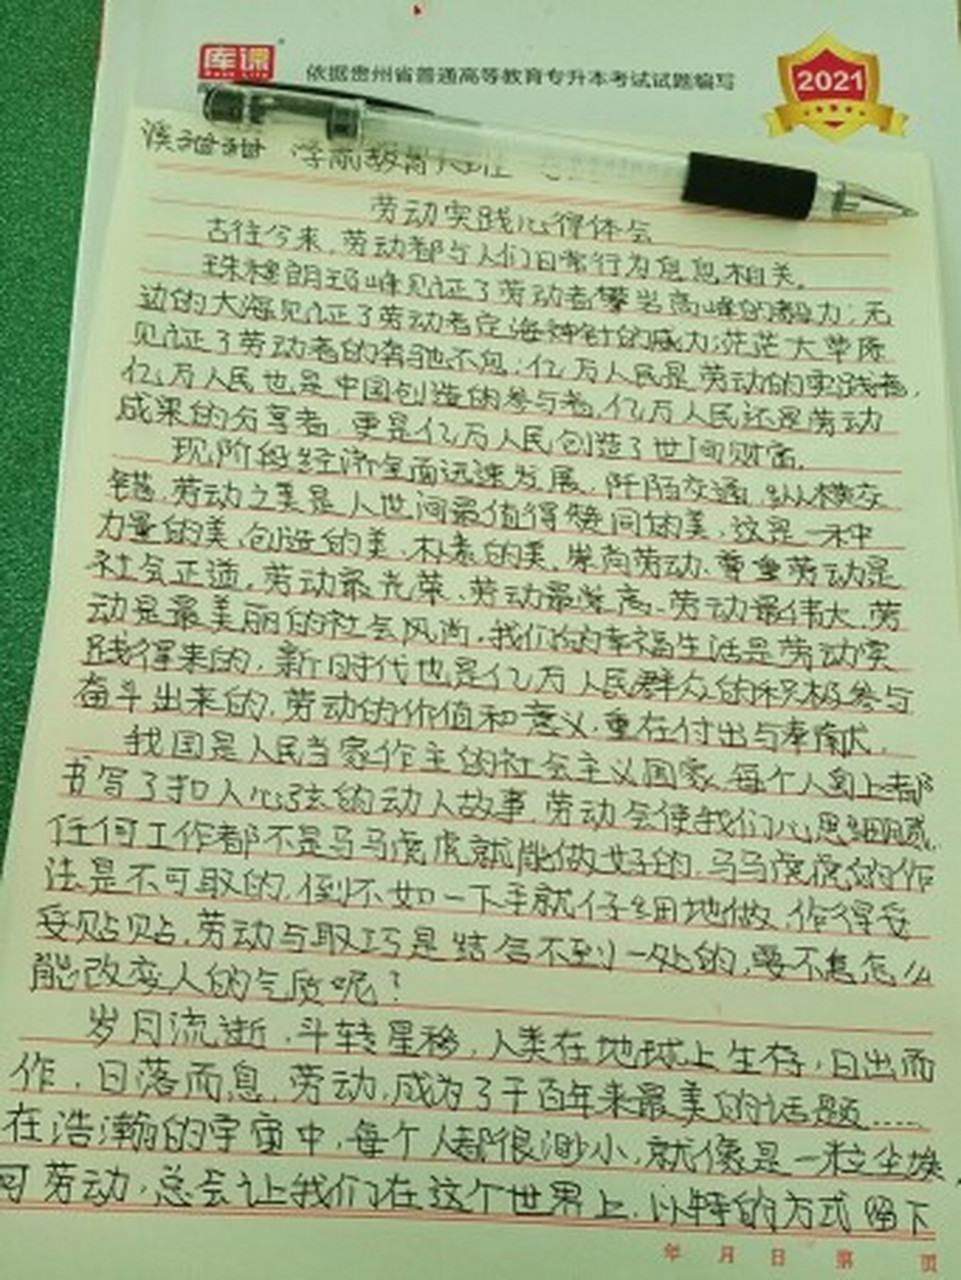 库课
依据贵州省普通高等教育专升本考试试题编写
2021
学前教育
劳动实践心得体会
古往今来,劳动都与人们日常行为息息相关。
珠穆朗玛峰见证了劳动者攀岩高峰的毅力;无
边的大海见证了劳动者定海神针的威力;茫茫大草原
见证了劳动者的奔驰不息;亿万人民是劳动的实践者,
亿万人民也是中国创造的参与者,亿万人民还是劳动
成果的分享者,更是亿万人民创造了世间财富。
现阶段经济全面迅速发展,阡陌交通,纵横交
错,劳动之美是人世间最值得赞同的美,这是一种
力量的美,创造的美,朴素的美,崇尚劳动、尊重劳动是
社会正道,劳动最光荣、劳动最崇高、劳动最伟大、劳
动是最美丽的社会风尚,我们的幸福生活是劳动实
践得来的,新时代也是亿万人民群众的积极参与
奋斗出来的,劳动的价值和意义,重在付出与奉献。
我国是人民当家作主的社会主义国家,每个人身上都
书写了扣人心弦的动人故事,劳动会使我们心思细腻,
任何工作都不是马马虎虎就能做好的,马马虎虎的作
法是不可取的,倒不如一下手就仔细地做,作得妥
妥贴贴,劳动与取巧是结合不到一处的,要不怎么
能改变人的气质呢?
岁月流逝,斗转星移,人类在地球上生存,日出而
作,日落而息,劳动,成为了千百年来最美的话题……
在浩瀚的宇宙中,每个人都很渺小,就像是一粒尘埃,
可劳动,总会让我们在这个世界上,以特的方式留下
年 月 日 第 页